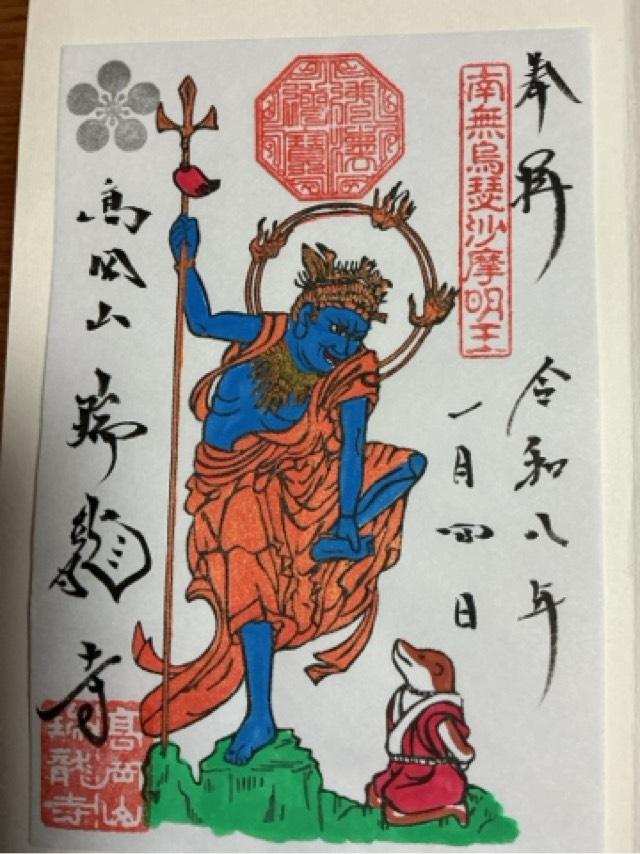 奉拝
南無烏瑟沙摩明王
令和八年
一月四日
高岡山瑞龍寺
高岡山
瑞龍寺